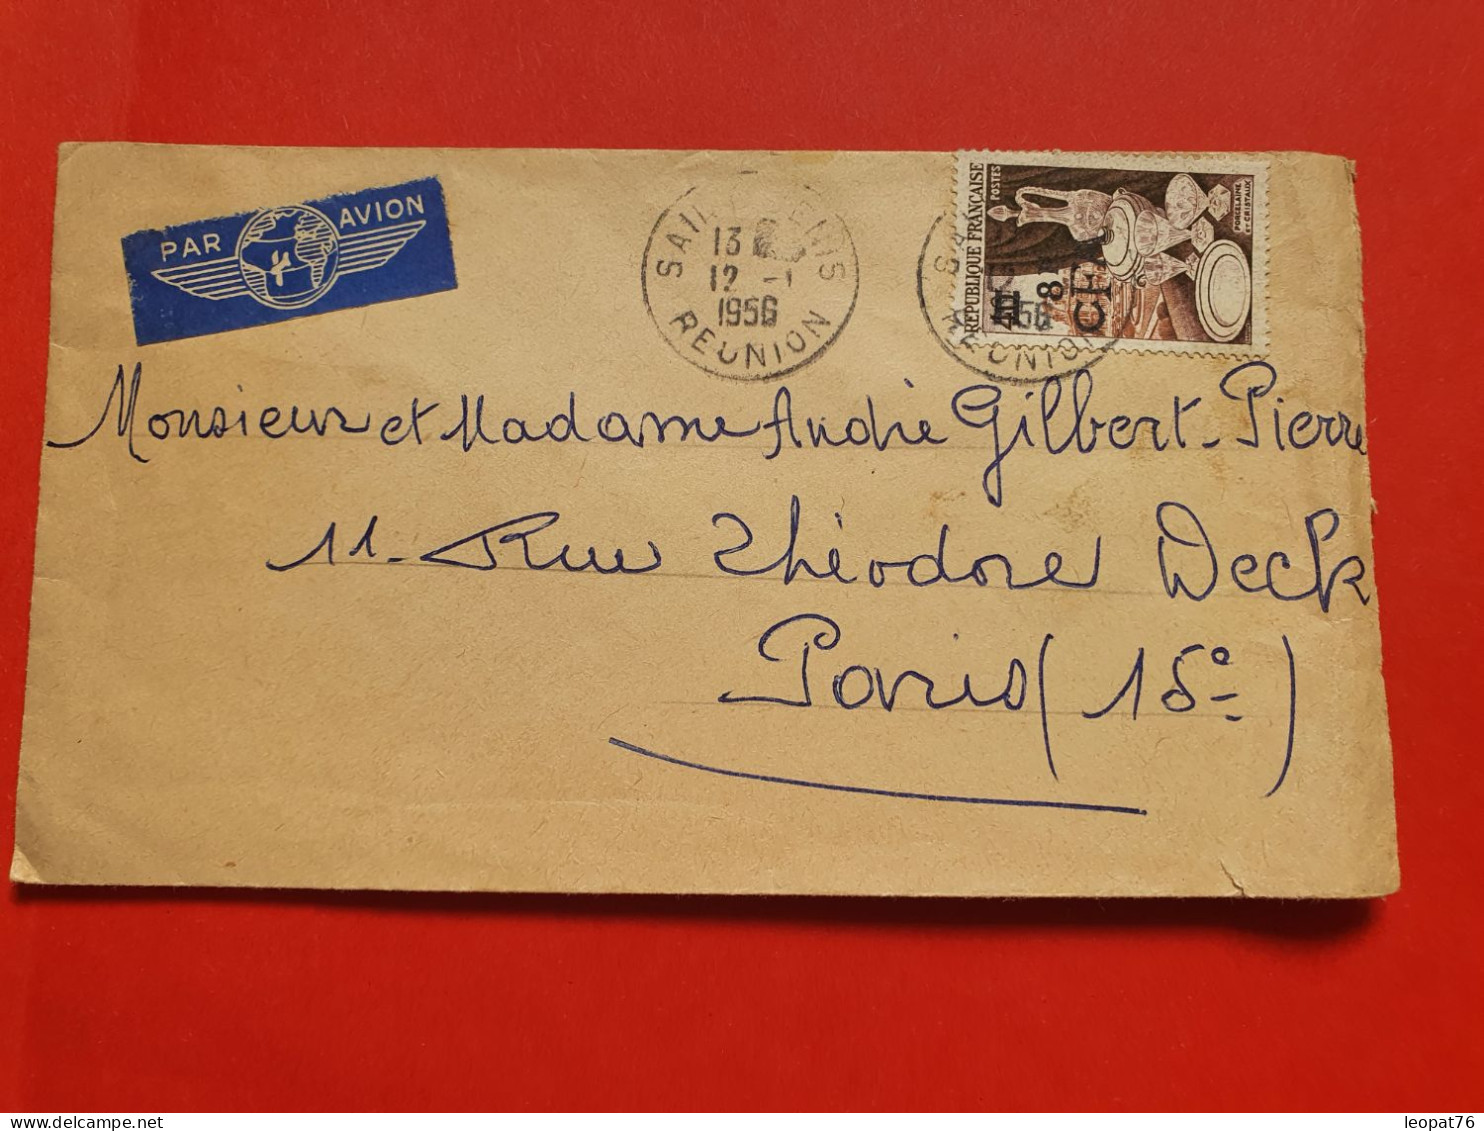 PAR AVION
SAINT DENIS
13
12 -1
1956
REUNION
REPUBLIQUE FRANÇAISE
POSTES
PORCELAINE
ET CRISTAUX
8
CFA
56
REUNION
Monsieur et Madame André Gilbert-Pierre
11- Rue Théodore Deck
Paris (15e)
leopat76